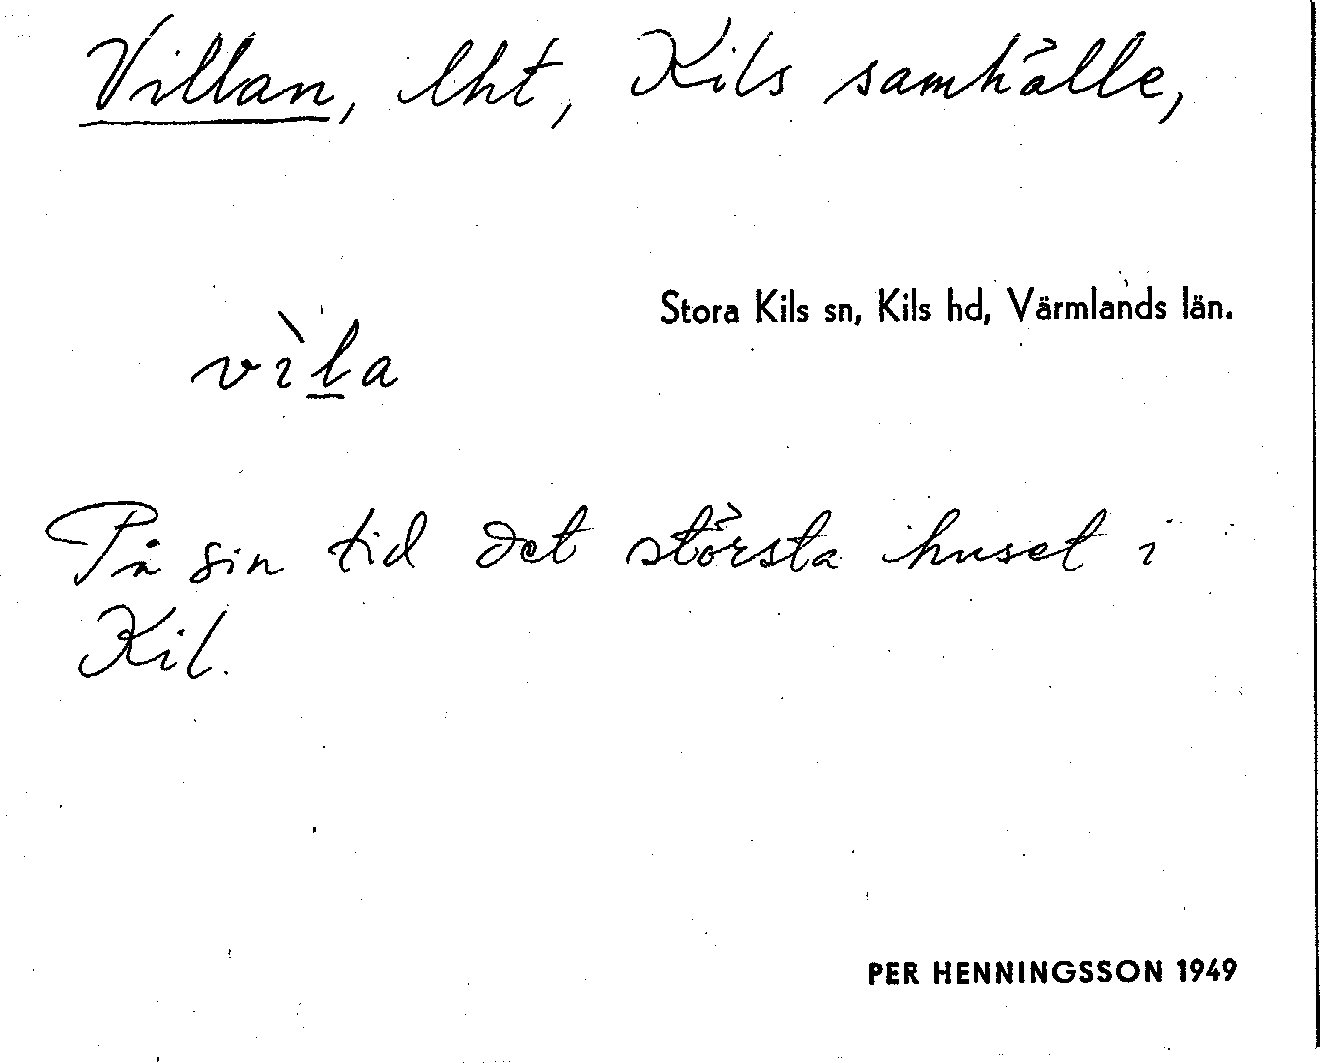 Villan, lht, Kils samhälle,
Stora Kils sn, Kils hd, Värmlands län.
vìla
På sin tid det största huset i
Kil.
PER HENNINGSSON 1949